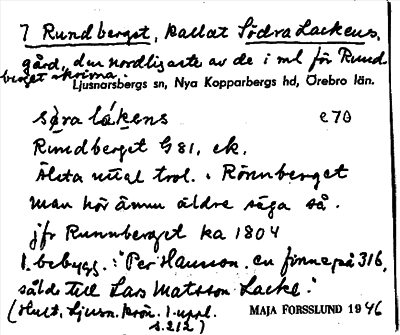 7 Rundberget, kallat Södra Lackens,
gård, den nordligaste av de i ml för Rund
berget skrivna.
Ljusnarsbergs sn, Nya Kopparbergs hd, Örebro län.
søra lákens e70
Rundberget G 81, ek.
Äldta uttal trol. : Rönnberget
man hör ännu äldre säga så.
jfr Runnberget ka 1804
1. bebygg. : "Per Hanson, en finne på 316,
sålde till Lars Matsson Lacke."
(Hult, Ljusn. krön. 1. uppl.
s. 212)
MAJA FORSSLUND 1946